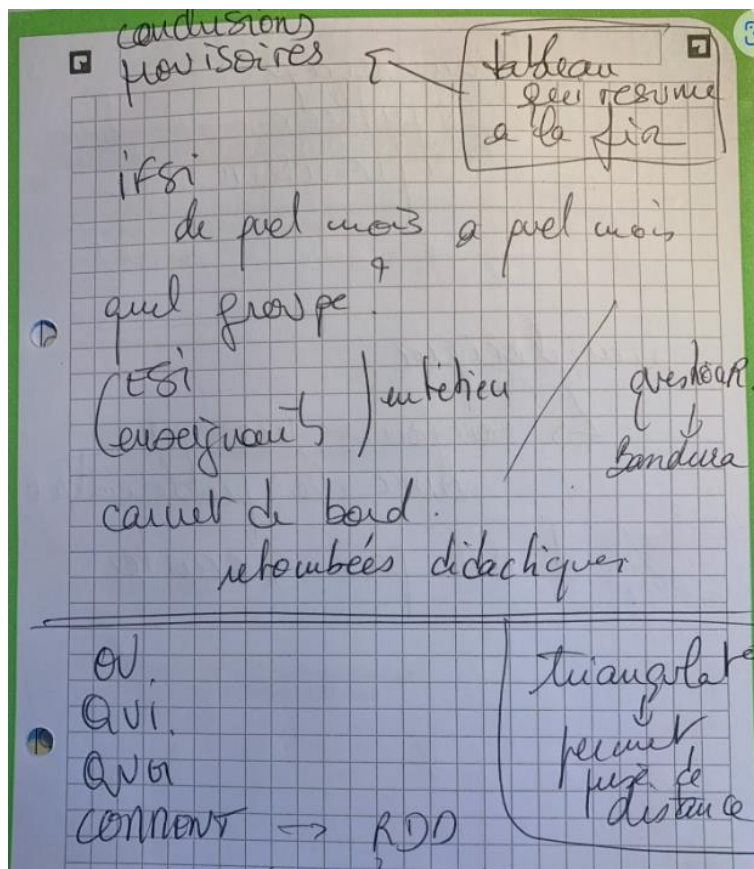 conclusions
provisoires
tableau
qui resume
a la fin
iFSi
de quel mois a quel mois
?
quel groupe
ESi
enseignants
entretien
questionR.
↓
Bandura
carnet de bord.
retombées didactiques
OU.
QUI.
QUOI
COMMENT → RDD
triangulat°
↓
permet
prise de
distance